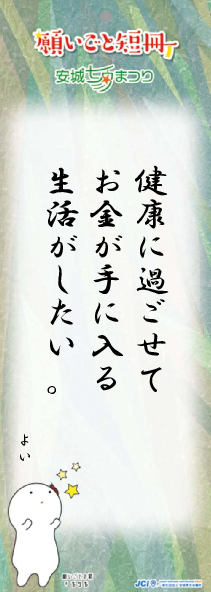 願いごと短冊
安城七夕まつり
健康に過ごせて
お金が手に入る
生活がしたい。
よい
JCI